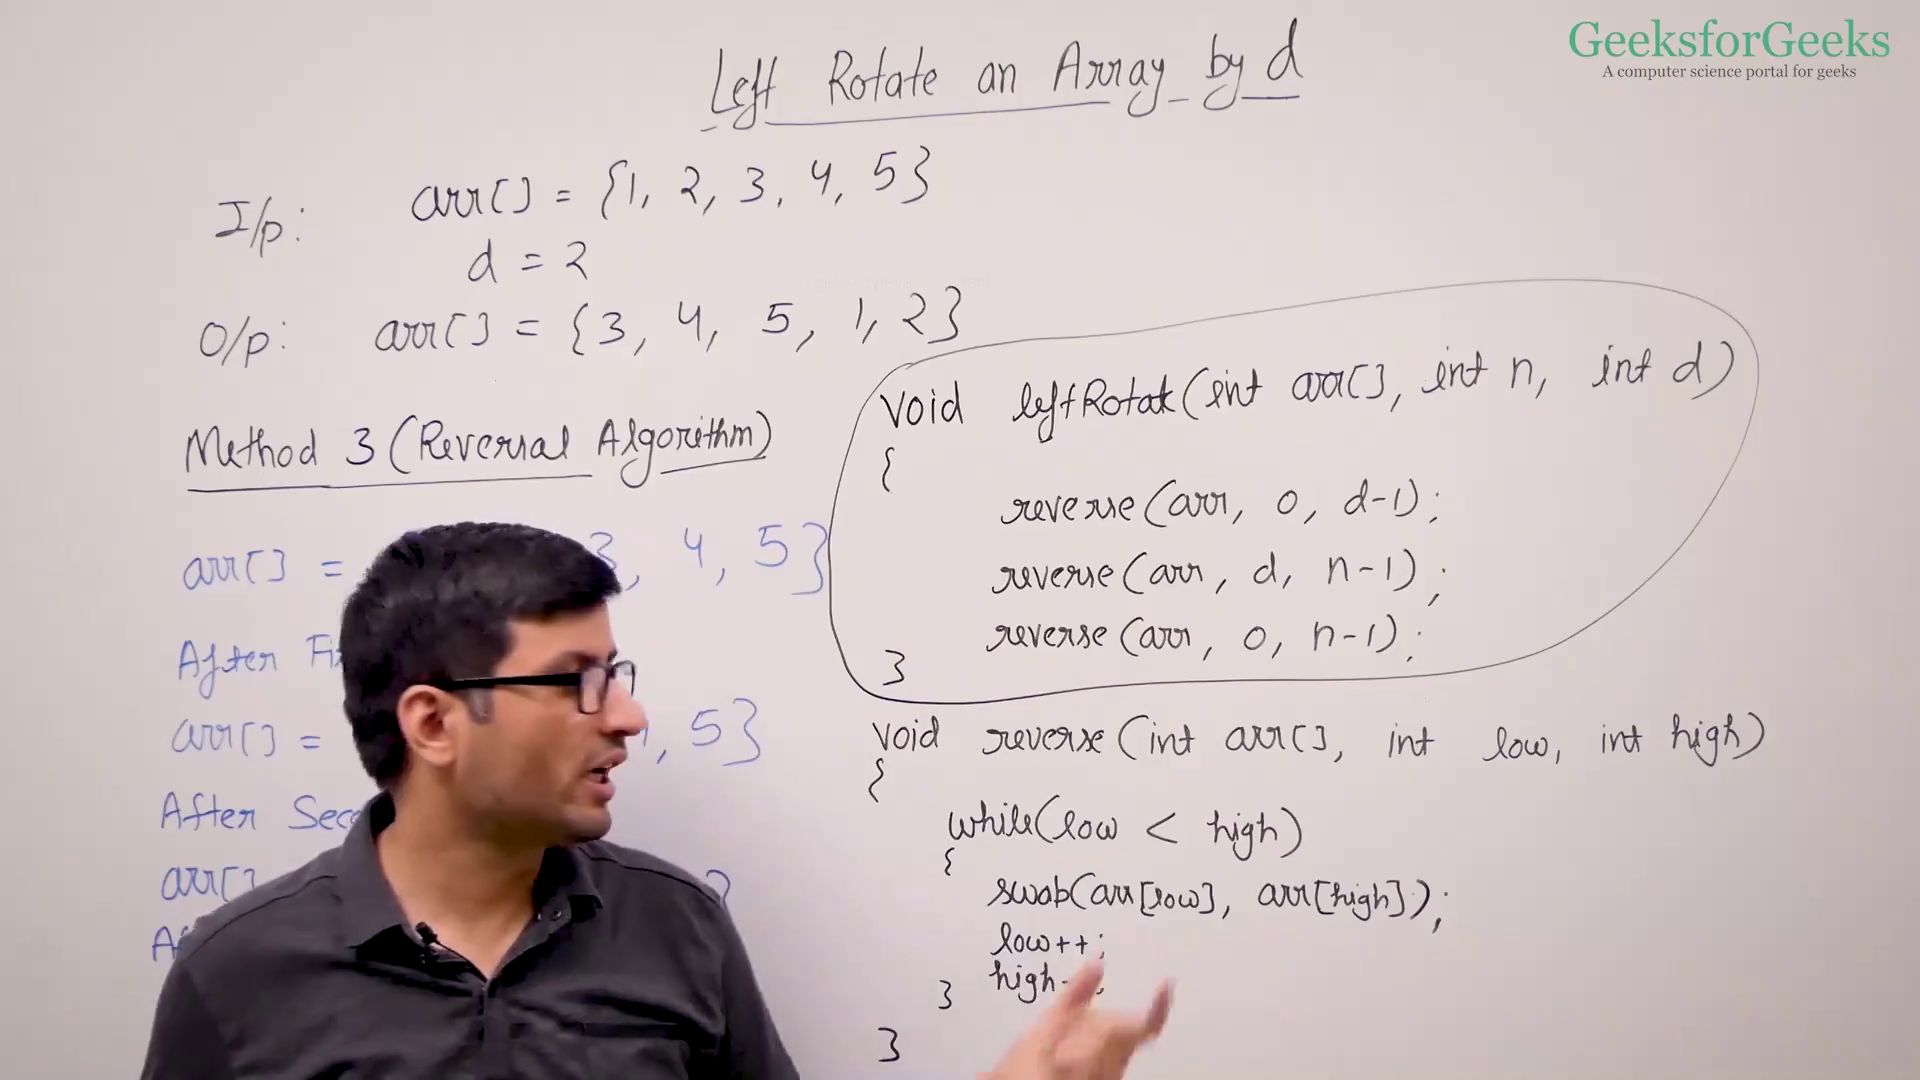 GeeksforGeeks
A computer science portal for geeks
Left Rotate an Array by d
I/p: arr[] = {1, 2, 3, 4, 5}
d = 2
O/p: arr[] = {3, 4, 5, 1, 2}
Method 3 (Reversal Algorithm)
arr[] = 3, 4, 5}
After
arr[] = , 5}
After
arr[]
void leftRotate(int arr[], int n, int d)
{
reverse(arr, 0, d-1);
reverse(arr, d, n-1);
reverse(arr, 0, n-1);
}
void reverse(int arr[], int low, int high)
{
while(low < high)
{
swap(arr[low], arr[high]);
low++;
high-
}
}